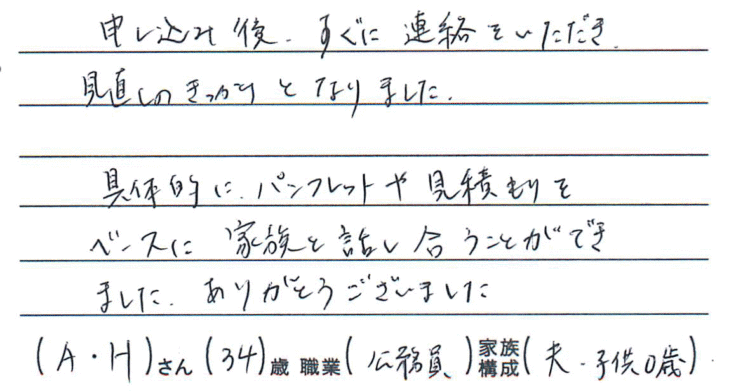 申し込み後、すぐに連絡をいただき、
見直しのきっかけとなりました。
具体的に、パンフレットや見積もりを
ベースに家族と話し合うことができ
ました。ありがとうございました
(A・H)さん(34)歳 職業(公務員)家族構成(夫・子供0歳)